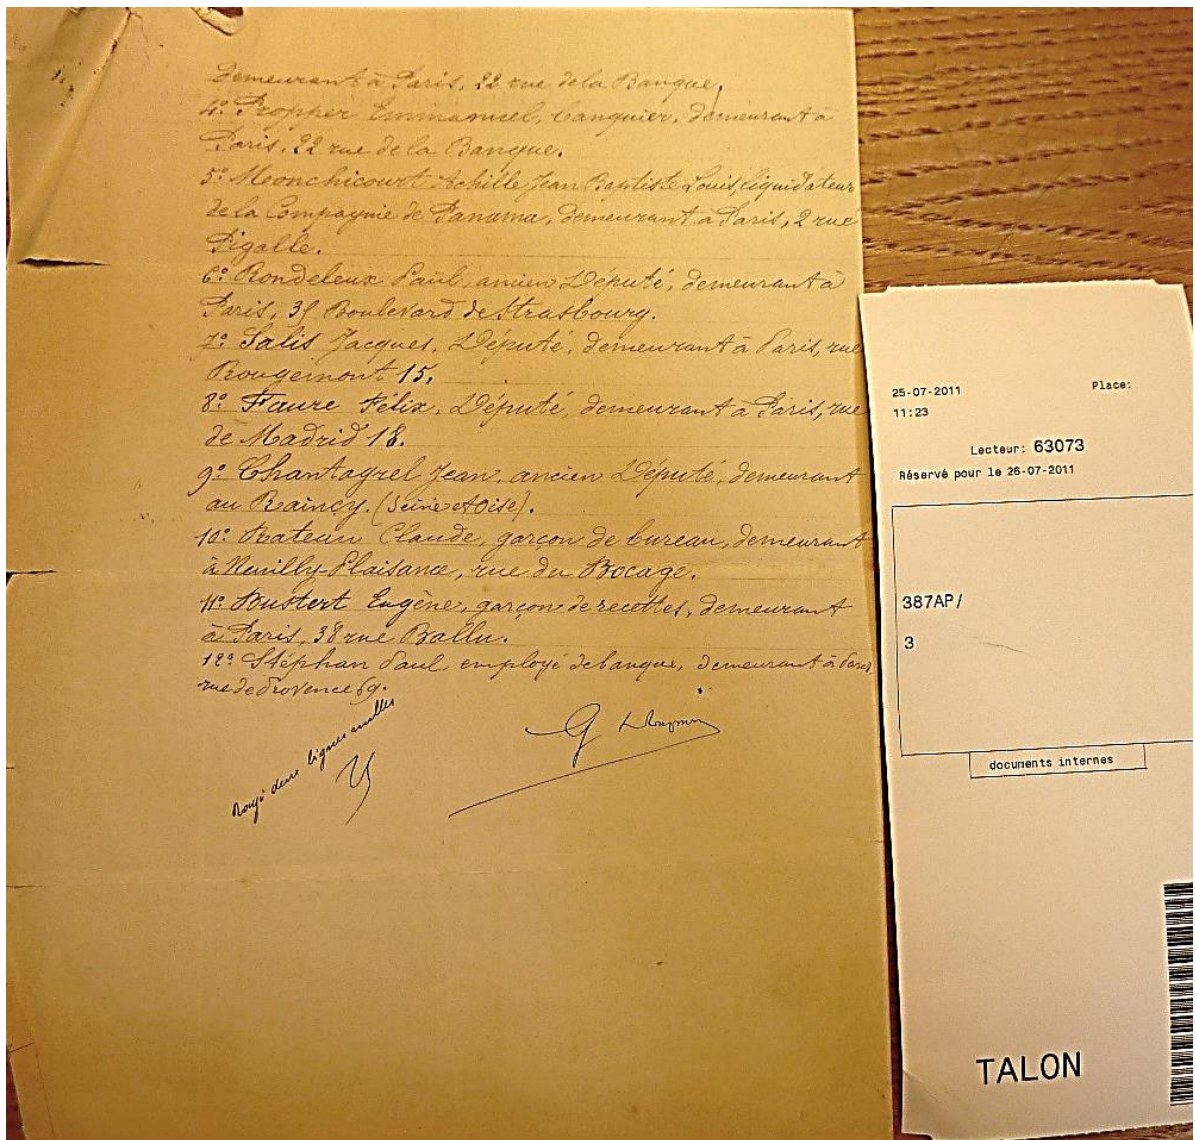 demeurant à Paris, 22 rue de la Banque.
4º Propper Emmanuel, banquier, demeurant à
Paris, 22 rue de la Banque.
5º Monchicourt Achille Jean Baptiste Louis, liquidateur
de la Compagnie de Panama, demeurant à Paris, 2 rue
Pigalle.
6º Rondeleux Paul, ancien Député, demeurant à
Paris, 35 Boulevard de Strasbourg.
7º Salis Jacques, Député, demeurant à Paris, rue
Rougemont 15.
8º Faure Félix, Député, demeurant à Paris, rue
de Madrid 18.
9º Chantagrel Jean, ancien Député, demeurant
au Raincy. (Seine et Oise).
10º Rateau Claude, garçon de bureau, demeurant
à Neuilly-Plaisance, rue du Bocage.
11º Bustert Eugène, garçon de recettes, demeurant
à Paris, 38 rue Ballu.
12º Stéphan Paul employé de banque, demeurant à Paris,
rue de Provence 69.
deux lignes nulles
G
25-07-2011
Place:
11:23
Lecteur: 63073
Réservé pour le 26-07-2011
387AP/
3
documents internes
TALON